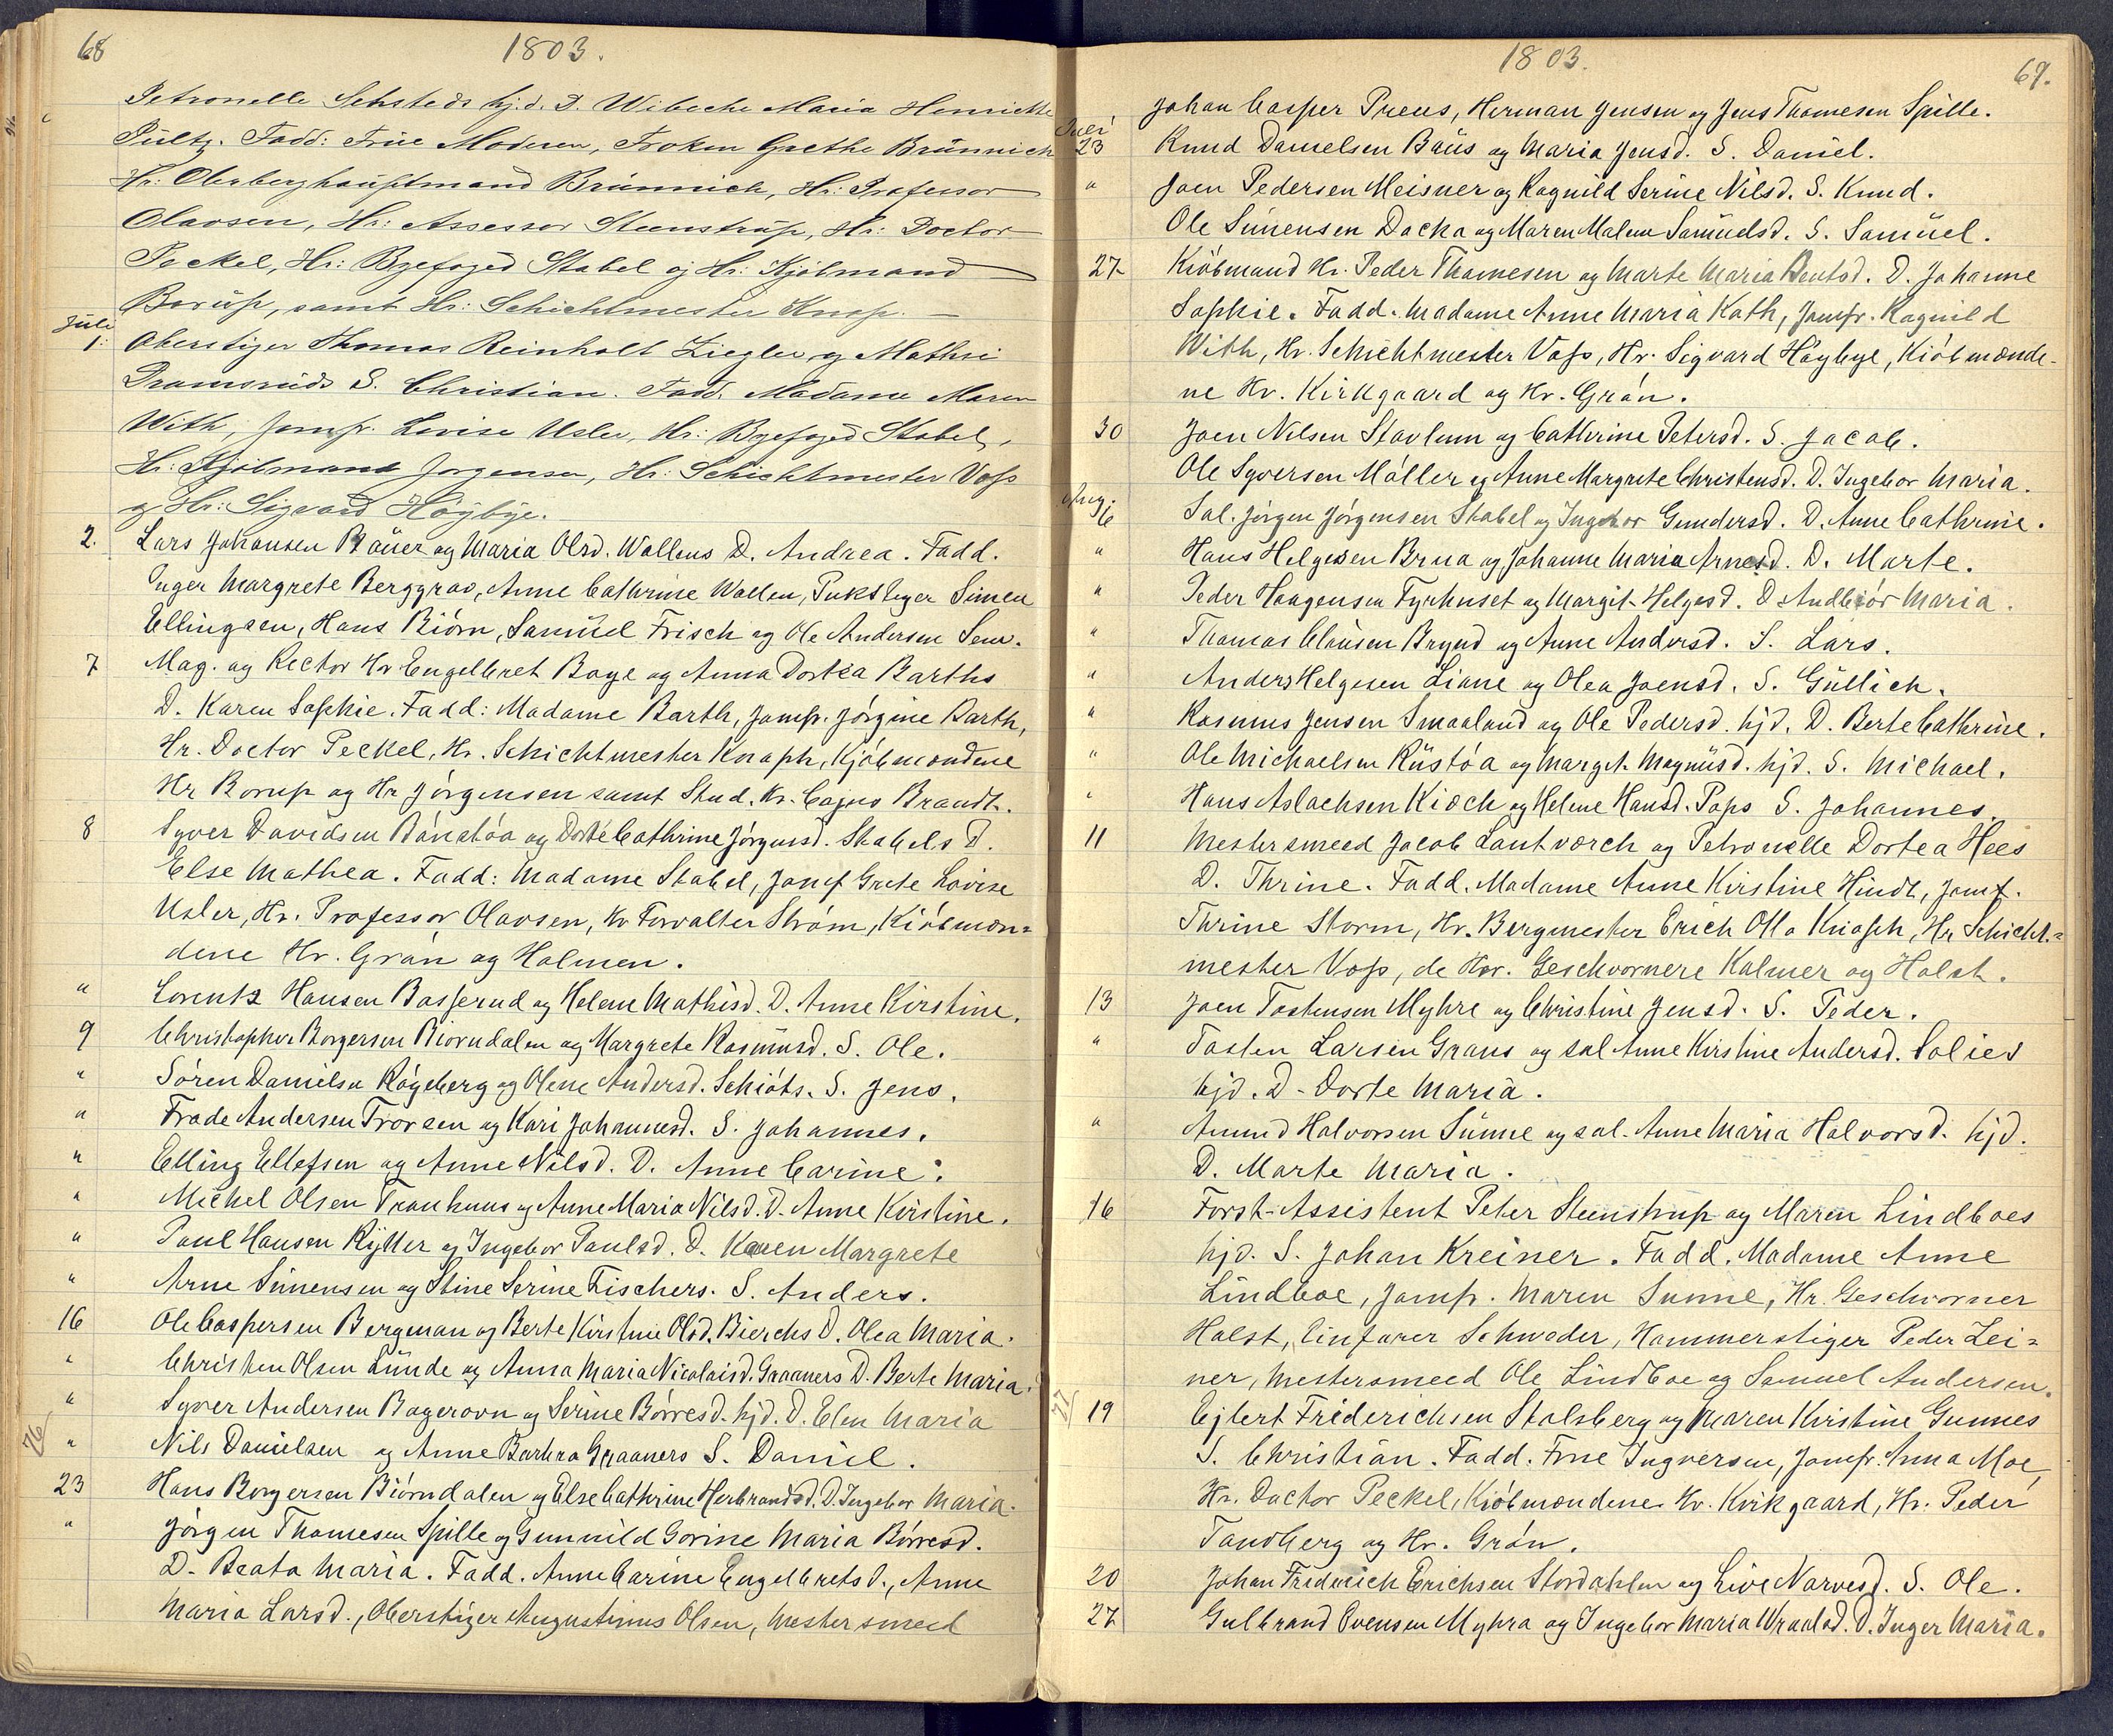 68
1803.
Petronelle Schsteds hjd. D. Wibeche Maria Henriette
Pultz. Fadd: Frue Moderen, Frøken Grethe Brünnich
Hr: Oberberghauptmand Brünnich, Hr: Professor
Olavsen, Hr: Assessor Steenstrup, Hr: Doctor
Peckel, Hr: Byefoged Stabel og Hr: Kjøbmand
Borup, samt Hr: Schichtmester Knap. —
Juli
1. Oberstiger Thomas Reinholt Ziegler og Mathri
Dramsruds S. Christian. Fadd. Madame Maren
With, Jomfr. Lovise Usler, Hr: Byefoged Stabel,
Hr: Kjøbmand Jørgensen, Hr: Schichtmester Voss
og Hr: Sigvard Høybye.
2. Lars Johansen Bauer og Maria Olsd. Wollens D. Andrea. Fadd.
Inger Margrete Berggrav, Anne Cathrine Wallen, Pukstiger Simen
Ellingsen, Hans Biørn, Samuel Frisch og Ole Andersen Sem.
7 Mag. og Rector Hr Engelbret Boye og Anna Dortea Barths
D. Karen Sophie. Fadd: Madame Barth, Jomfr. Jørgine Barth,
Hr. Doctor Peckel, Hr. Schichtmester Knaph, Kjøbmændene
Hr Borup og Hr Jørgensen samt Stud. Hr. Cajus Brandt.
8 Syver Davidsen Bánstøa og Dorte Cathrine Jørgensd. Stabels D.
Else Mathea. Fadd: Madame Stabel, Jomf Grete Lovise
Usler, Hr. Professor Olavsen, Hr Forvalter Strøm, Kiøbmæn=
dene Hr. Grøn og Holmen.
" Lorentz Hansen Basserud og Helene Mathisd. D. Anne Kirstine.
9 Christopher Borgersen Biørndalen og Margrete Rasmusd. S. Ole.
" Søren Danielsen Røgeberg og Olene Andersd. Schiøts. S. Jens.
" Frade Andersen Frorsen og Kari Johannesd. S. Johannes.
" Elling Ellefsen og Anne Nilsd. D. Anne Carine.
" Michel Olsen Tranhuus og Anne Maria Nilsd. D. Anne Kirstine.
" Paul Hansen Rytter og Ingebor Paulsd. D. Karen Margrete
" Arne Simensen og Stine Serine Fischers. S. Anders.
16 Ole Caspersen Bergman og Berte Kirstine Olsd. Bierchs D. Olea Maria.
" Christen Olsen Lunde og Anna Maria Nicolaisd. Graaners D. Berte Maria.
" Syver Andersen Bagerovn og Serine Børresd. hjd. D. Elen Maria
76
" Nils Danielsen og Anne Barbra Graaners S. Daniel.
23 Hans Borgersen Biørndalen og Else Cathrine Herbrandsd. D. Ingebor Maria.
" Jørgen Thomesen Spille og Gunnild Gorine Maria Børresd.
D. Beata Maria. Fadd. Anne Carine Engelbretsd., Anne
Maria Larsd., Oberstiger Augustinus Olsen, Mestersmed
1803.
69.
Johan Casper Preus, Herman Jensen og Jens Thomesen Spille.
Juli
23 Knud Danielsen Baus og Maria Jensd. S. Daniel.
" Joen Pedersen Meisner og Ragnild Serine Nilsd. S. Knud.
Ole Simensen Docka og Maren Malene Samuelsd. S. Samuel.
27 Kiøbmand Hr. Peder Thomesen og Marte Maria Bentsd. D. Johanne
Sophie. Fadd. Madame Anne Maria Kath, Jomfr. Ragnild
With, Hr. Schichtmester Voss, Hr. Sigvard Høybye, Kiøbmænde-
ne Hr. Kirkgaard og Hr. Grøn.
30 Joen Nilsen Stavlum og Cathrine Petersd. S. Jacob.
Ole Syversen Møller og Anne Margrete Christensd. D. Ingebor Maria.
Aug.
6 Sal. Jørgen Jørgensen Stabel og Ingebor Gundersd. D. Anne Cathrine.
" Hans Helgesen Brua og Johanne Maria Arnesd. D. Marte.
" Peder Haagensen Fyrhuset og Margit Helgesd. D. Andbiør Maria.
" Thomas Clausen Brynd og Anne Andersd. S. Lars.
" Anders Helgesen Liane og Olea Joensd. S. Gullich.
" Rasmus Jensen Smaaland og Ole Pedersd. hjd. D. Berte Cathrine.
" Ole Michaelsen Rustøa og Marget Magnusd. hjd. S. Michael.
" Hans Aslachsen Kioch og Helene Hansd. Paps S. Johannes.
11 Mestersmeed Jacob Lantværch og Petronelle Dortea Hees
D. Thrine. Fadd. Madame Anne Kirstine Hindt, Jomf.
Thrine Storm, Hr. Bergmester Erich Otto Knaph, Hr Schicht=
mester Voss, de Hrr. Geschvornere Kalmer og Holst.
13 Joen Tostensen Myhre og Christine Jensd. S. Peder.
" Tosten Larsen Graus og sal Anne Kirstine Andersd. Solies
hjd. D. Dorte Maria.
" Amund Halvorsen Sunne og sal. Anne Maria Halvorsd. hjd.
D. Marte Maria.
16 Forst-Assistent Peter Steenstrup og Maren Lindboes
hjd. S. Johan Kreiner. Fadd. Madame Anne
Lindboe, Jomfr. Maren Sunne, Hr. Geschvorner
Holst, Einfarer Schwoder, Hammerstiger Peder Zei=
ner, Mestersmeed Ole Lindboe og Samuel Andersen.
77
19 Ejlert Friderichsen Stalsberg og Maren Kirstine Gunnes
S. Christian. Fadd. Frue Ingversen, Jomfr. Anna Moe,
Hr. Doctor Peckel, Kiøbmændene Hr. Kirkgaard, Hr. Peder
Tandberg og Hr. Grøn.
20 Johan Friderich Erichsen Stordahlen og Live Narvesd. S. Ole.
27 Gulbrand Evensen Myhra og Ingebor Maria Wraalsd. D. Inger Maria.